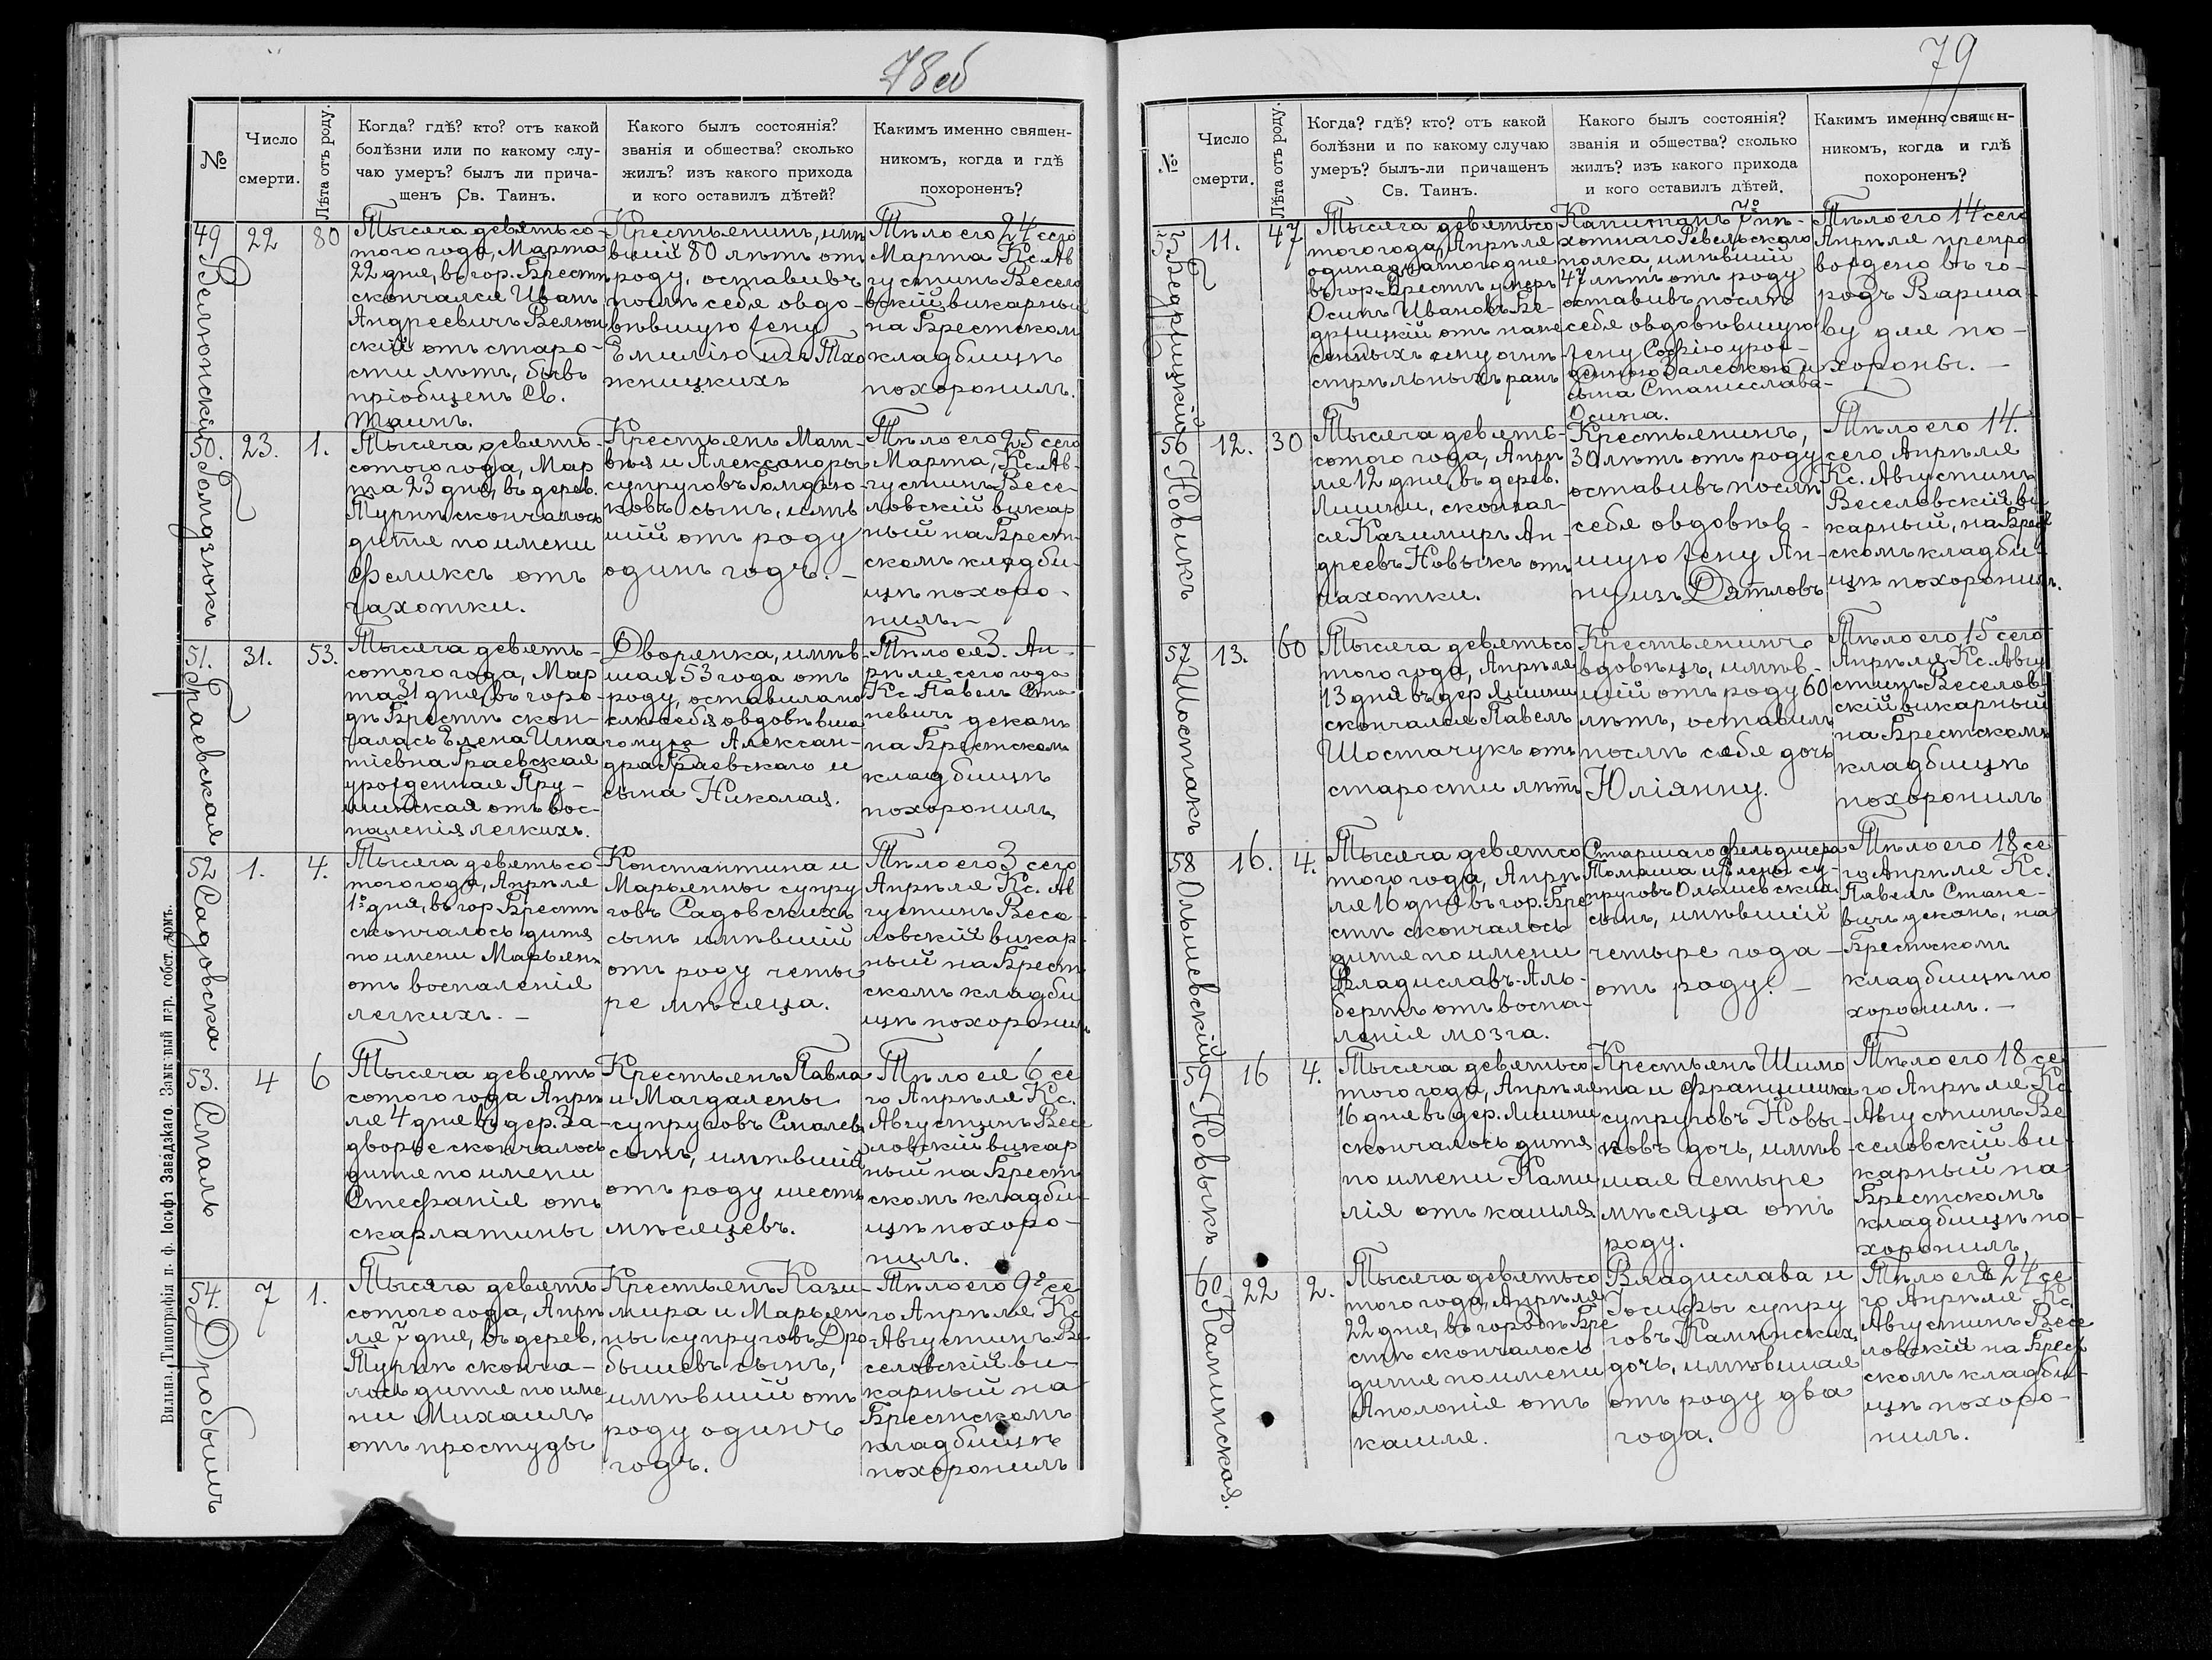 78 об
№
Число
смерти.
Лѣта отъ роду.
Когда? гдѣ? кто? отъ какой
болѣзни или по какому слу-
чаю умеръ? былъ ли прича-
щенъ Св. Таинъ.
Какого былъ состоянія?
званія и общества? сколько
жилъ? изъ какого прихода
и кого оставилъ дѣтей?
Какимъ именно священ-
никомъ, когда и гдѣ
похороненъ?
49
Велюонскій
22
80
Тысяча девятьсо-
того года, Марта
22 дня, въ гор. Брестѣ
скончался Иванъ
Андреевичъ Велюон
скій отъ старо-
сти лѣтъ, бывъ
пріобщенъ Св.
Таинъ.
Крестьянинъ, имѣ
вшій 80 лѣтъ отъ
роду, оставивъ
послѣ себя овдо-
вѣвшую жену
Емилію изъ
Тѣло его 24 сего
Марта Кс. Ав
густинъ Весело
вскій викарный
на Брестском
кладбищѣ
похоронилъ.
50.
Гомдзюкъ
23.
1.
Тысяча девять-
сотого года, Мар
та 23 дня, въ дерев.
Турнѣ скончалось
дитя по имени
Феликсъ отъ
чахотки.
Крестьянъ Мат-
вѣя и Александры
супруговъ Гомдзю-
ковъ сынъ, имѣв
шій отъ роду
одинъ годъ. –
Тѣло его 25 сего
Марта, Кс. Ав-
густинъ Весе-
ловскій викар
ный на Брест-
скомъ кладби-
щѣ похоро-
нилъ. –
51.
Граевская
31.
53.
Тысяча девять-
сотого года, Мар
та 31 дня, въ горо-
дѣ Брестѣ скон-
чалась Елена Игна
тіевна Граевская
урожденная Пру-
шинская отъ вос-
паленія легкихъ.
Дворянка, имѣв-
шая 53 года отъ
роду, оставила по
слѣ себя овдовѣвша
го мужа Алексан-
дра Граевскаго и
сына Николая.
Тѣло ея 3. Ап-
рѣля сего года
Кс. Павелъ Ста
невичъ деканъ
на Брестскомъ
кладбищѣ
похоронилъ
52
Садовска
1.
4.
Тысяча девятьсо
того года, Апрѣля
1º дня, въ гор Брестѣ
скончалось дитя
по имени Марьянъ
отъ воспаленія
легкихъ. –
Константина и
Марьянны супру
говъ Садовскихъ
сынъ имѣвшій
отъ роду четы
ре мѣсяца.
Тѣло его 3 сего
Апрѣля Кс. Ав
густинъ Весе-
ловскій викар-
ный на Брест
скомъ кладби
щѣ похоронилъ
53.
Смаль
4
6
Тысяча девять
сотого года Апрѣ
ля 4 дня въ дер. За-
дворье скончалось
дитя по имени
Стефанія отъ
скарлатины
Крестьянъ Павла
и Магдалены
супруговъ Смалевъ
сынъ, имѣвшій
отъ роду шесть
мѣсяцевъ.
Тѣло ея 6 се
го Апрѣля Кс.
Августинъ Весе
ловскій викар
ный на Брест
скомъ кладби-
щѣ похоро-
нилъ.
54.
Дробышъ
7
1.
Тысяча девять
сотого года, Апрѣ
ля 7 дня, въ дерев.
Турнѣ сконча-
лось дитя по име
ни Михаилъ
отъ простуды
Крестьянъ Кази-
мира и Марьян
ны супруговъ Дро-
бышевъ сынъ,
имѣвшій отъ
роду одинъ
годъ.
Тѣло его 9º се
го Апрѣля Кс
Августинъ Ве
селовскій ви-
карный на
Брестскомъ
кладбищѣ
похоронилъ
Вильна, Типографія п. ф. Іосифъ Завадзкаго. Замк-вый пер. собст. домъ.
79
№
Число
смерти.
Лѣта отъ роду.
Когда? гдѣ? кто? отъ какой
болѣзни и по какому случаю
умеръ? былъ-ли причащенъ
Св. Таинъ.
Какого былъ состоянія?
званія и общества? сколько
жилъ? изъ какого прихода
и кого оставилъ дѣтей.
Какимъ именно священ-
никомъ, когда и гдѣ
похороненъ?
55.
11.
47
Тысяча девятьсо
того года, Апрѣля
одинадцатого дня
въ гор. Брестѣ умеръ
Осипъ Ивановъ Бе-
држицкій отъ нане
сенныхъ ему огне
стрѣльныхъ ранъ
Капитанъ 7º пѣ-
хотнаго Ревельскаго
полка, имѣвшій
47 лѣтъ отъ роду
оставивъ послѣ
себя овдовѣвшую
жену Софію урож-
денную Залескою и
сына Станислава-
Осипа.
Тѣло его 14 сего
Апрѣля препро
вождено въ го-
родъ Варша
ву для по-
хороны. –
56
Новикъ
12.
30
Тысяча девять-
сотого года, Апрѣ
ля 12 дня, въ дерев.
Лишни, скончал-
ся Казимиръ Ан-
дреевъ Новыкъ отъ
чахотки.
Крестьянинъ,
30 лѣтъ отъ роду
оставивъ послѣ
себя овдовѣв-
шую жену Ан-
ну изъ Дятловъ
Тѣло его 14.
сего Апрѣля
Кс. Августинъ
Веселовскій ви
карный, на Брест
скомъ кладби-
щѣ похоронилъ.
57
Шостакъ
13.
60
Тысяча девятьсо
того года, Апрѣля
13 дня въ дер Лишни
скончался Павелъ
Шостачукъ отъ
старости лѣтъ
Крестьянинъ
вдовецъ, имѣв-
шій отъ роду 60
лѣтъ, оставилъ
послѣ себя дочь
Юліянну.
Тѣло его 15 сего
Апрѣля Кс. Авгу
стинъ Веселов-
скій викарный
на Брестскомъ
кладбищѣ
похоронилъ
58
Ольшевскій
16.
4.
Тысяча девятсо
того года, Апрѣ
ля 16 дня въ гор. Бре
стѣ скончалось
дитя по имени
Владиславъ-Аль-
бертъ отъ воспа-
ленія мозга.
Старшаго фельдшера
Томаша и Елены су-
пруговъ Ольшевских
сынъ, имѣвшій
четыре года –
отъ роду. –
Тѣло его 18 се
го Апрѣля Кс.
Павелъ Стане-
вичъ деканъ, на
Брестскомъ
кладбищѣ по
хоронилъ. –
59
Новыкъ
16
4.
Тысяча девятьсо
того года, Апрѣля
16 дня въ дер. Лишни
скончалось дитя
по имени Ками
лія отъ кашля.
Крестьянъ Шимо
на и Францишки
супруговъ Новы-
ковъ дочь, имѣв-
шая четыре
мѣсяца отъ
роду.
Тѣло его 18 се
го Апрѣля Кс
Августинъ Ве
селовскій ви-
карный на
Брестскомъ
кладбищѣ по-
хоронилъ,
60
Каминская.
22
2.
Тысяча девятьсо
того года, Апрѣля
22 дня, въ городѣ Бре
стѣ скончалось
дитя по имени
Аполонія отъ
кашля.
Владислава и
Іосифы супру
говъ Каминских
дочь, имѣвшая
отъ роду два
года.
Тѣло его 24 се
го Апрѣля Кс.
Августинъ Весе
ловскій на Брест
скомъ кладби-
щѣ похоро-
нилъ.